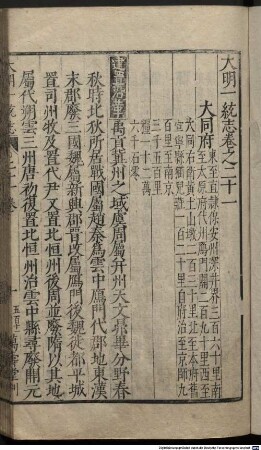 大明一統志卷之二十一
大同府
東至直隸保安州深井界三百六十里南
至太原府代州鴈門關二百九十里西至
大同右衛黃土山墩二百三十里北至本府舊
宣寧縣貓兒莊一百二十里自府治至京師九
百里至南京
三千五百里
鋪一十二萬
六千石零
建置沿革
禹貢冀州之域虞周屬并州天文昴畢分野春
秋時北狄所居戰國屬趙秦為雲中鴈門代郡地東漢
末郡廢三國魏屬新興郡晉改屬鴈門後魏徙都平城
置司州牧及置代尹又置北恒州後周並廢隋以其地
屬代朔雲三州唐初復置北恒州治雲中縣尋廢開元